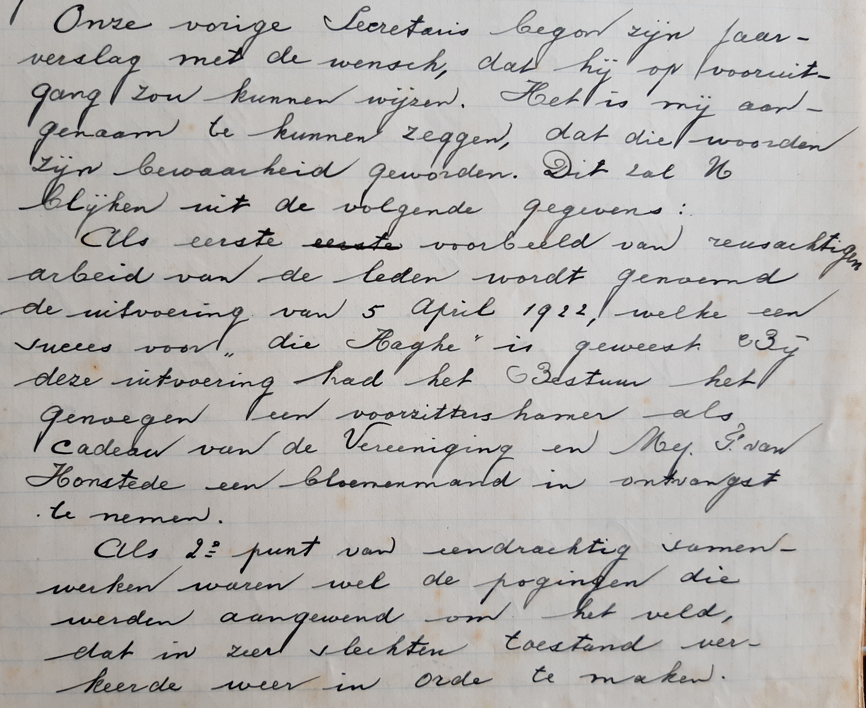 Onze vorige Secretaris begon zijn jaar-
verslag met de wensch, dat hij op vooruit-
gang zou kunnen wijzen. Het is mij aan-
genaam te kunnen zeggen, dat die woorden
zijn bewaarheid geworden. Dit zal U
blijken uit de volgende gegevens:
Als eerste eerste voorbeeld van reusachtigen
arbeid van de leden wordt genoemd
de uitvoering van 5 April 1922, welke een
succes voor „die Haghe" is geweest Bij
deze uitvoering had het Bestuur het
genoegen een voorzittershamer als
cadeau van de Vereeniging en Mej. van
Honstede een bloemenmand in ontvangst
te nemen.
Als 2e punt van eendrachtig samen-
werken waren wel de pogingen die
werden aangewend om het veld,
dat in zeer slechten toestand ver-
keerde weer in orde te maken.